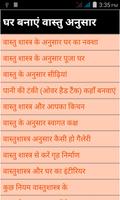 3:35 PM
घर बनाएं वास्तु अनुसार
वास्तु शास्त्र के अनुसार घर का नक्शा
वास्तु शास्त्र के अनुसार पूजा घर
वास्तु के अनुसार सीढ़ियां
पानी की टंकी (ओवर हैड टैंक) कहाँ बनवाएं
वास्तु शास्त्र और आपका किचन
वास्तु के अनुसार स्वागत कक्ष
वास्तुशास्त्र अनुसार कैसी हो गैलेरी
वास्तु शास्त्र से करें गृह निर्माण
वास्तु शास्त्र और घर का इंटीरियर
कुछ नियम वास्तुशास्त्र के